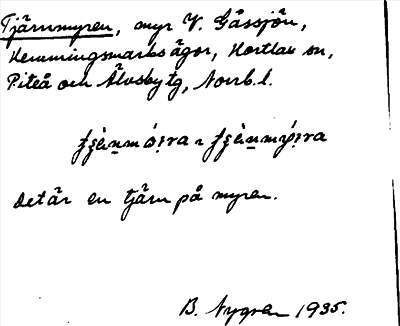 Tjärnmyren, myr V. Gåssjön,
Hemmingsmarks ägor, Hortlax sn,
Piteå och Älvsby tg, Norrb. l.
det är en tjärn på myren.
B. Nygren 1935.